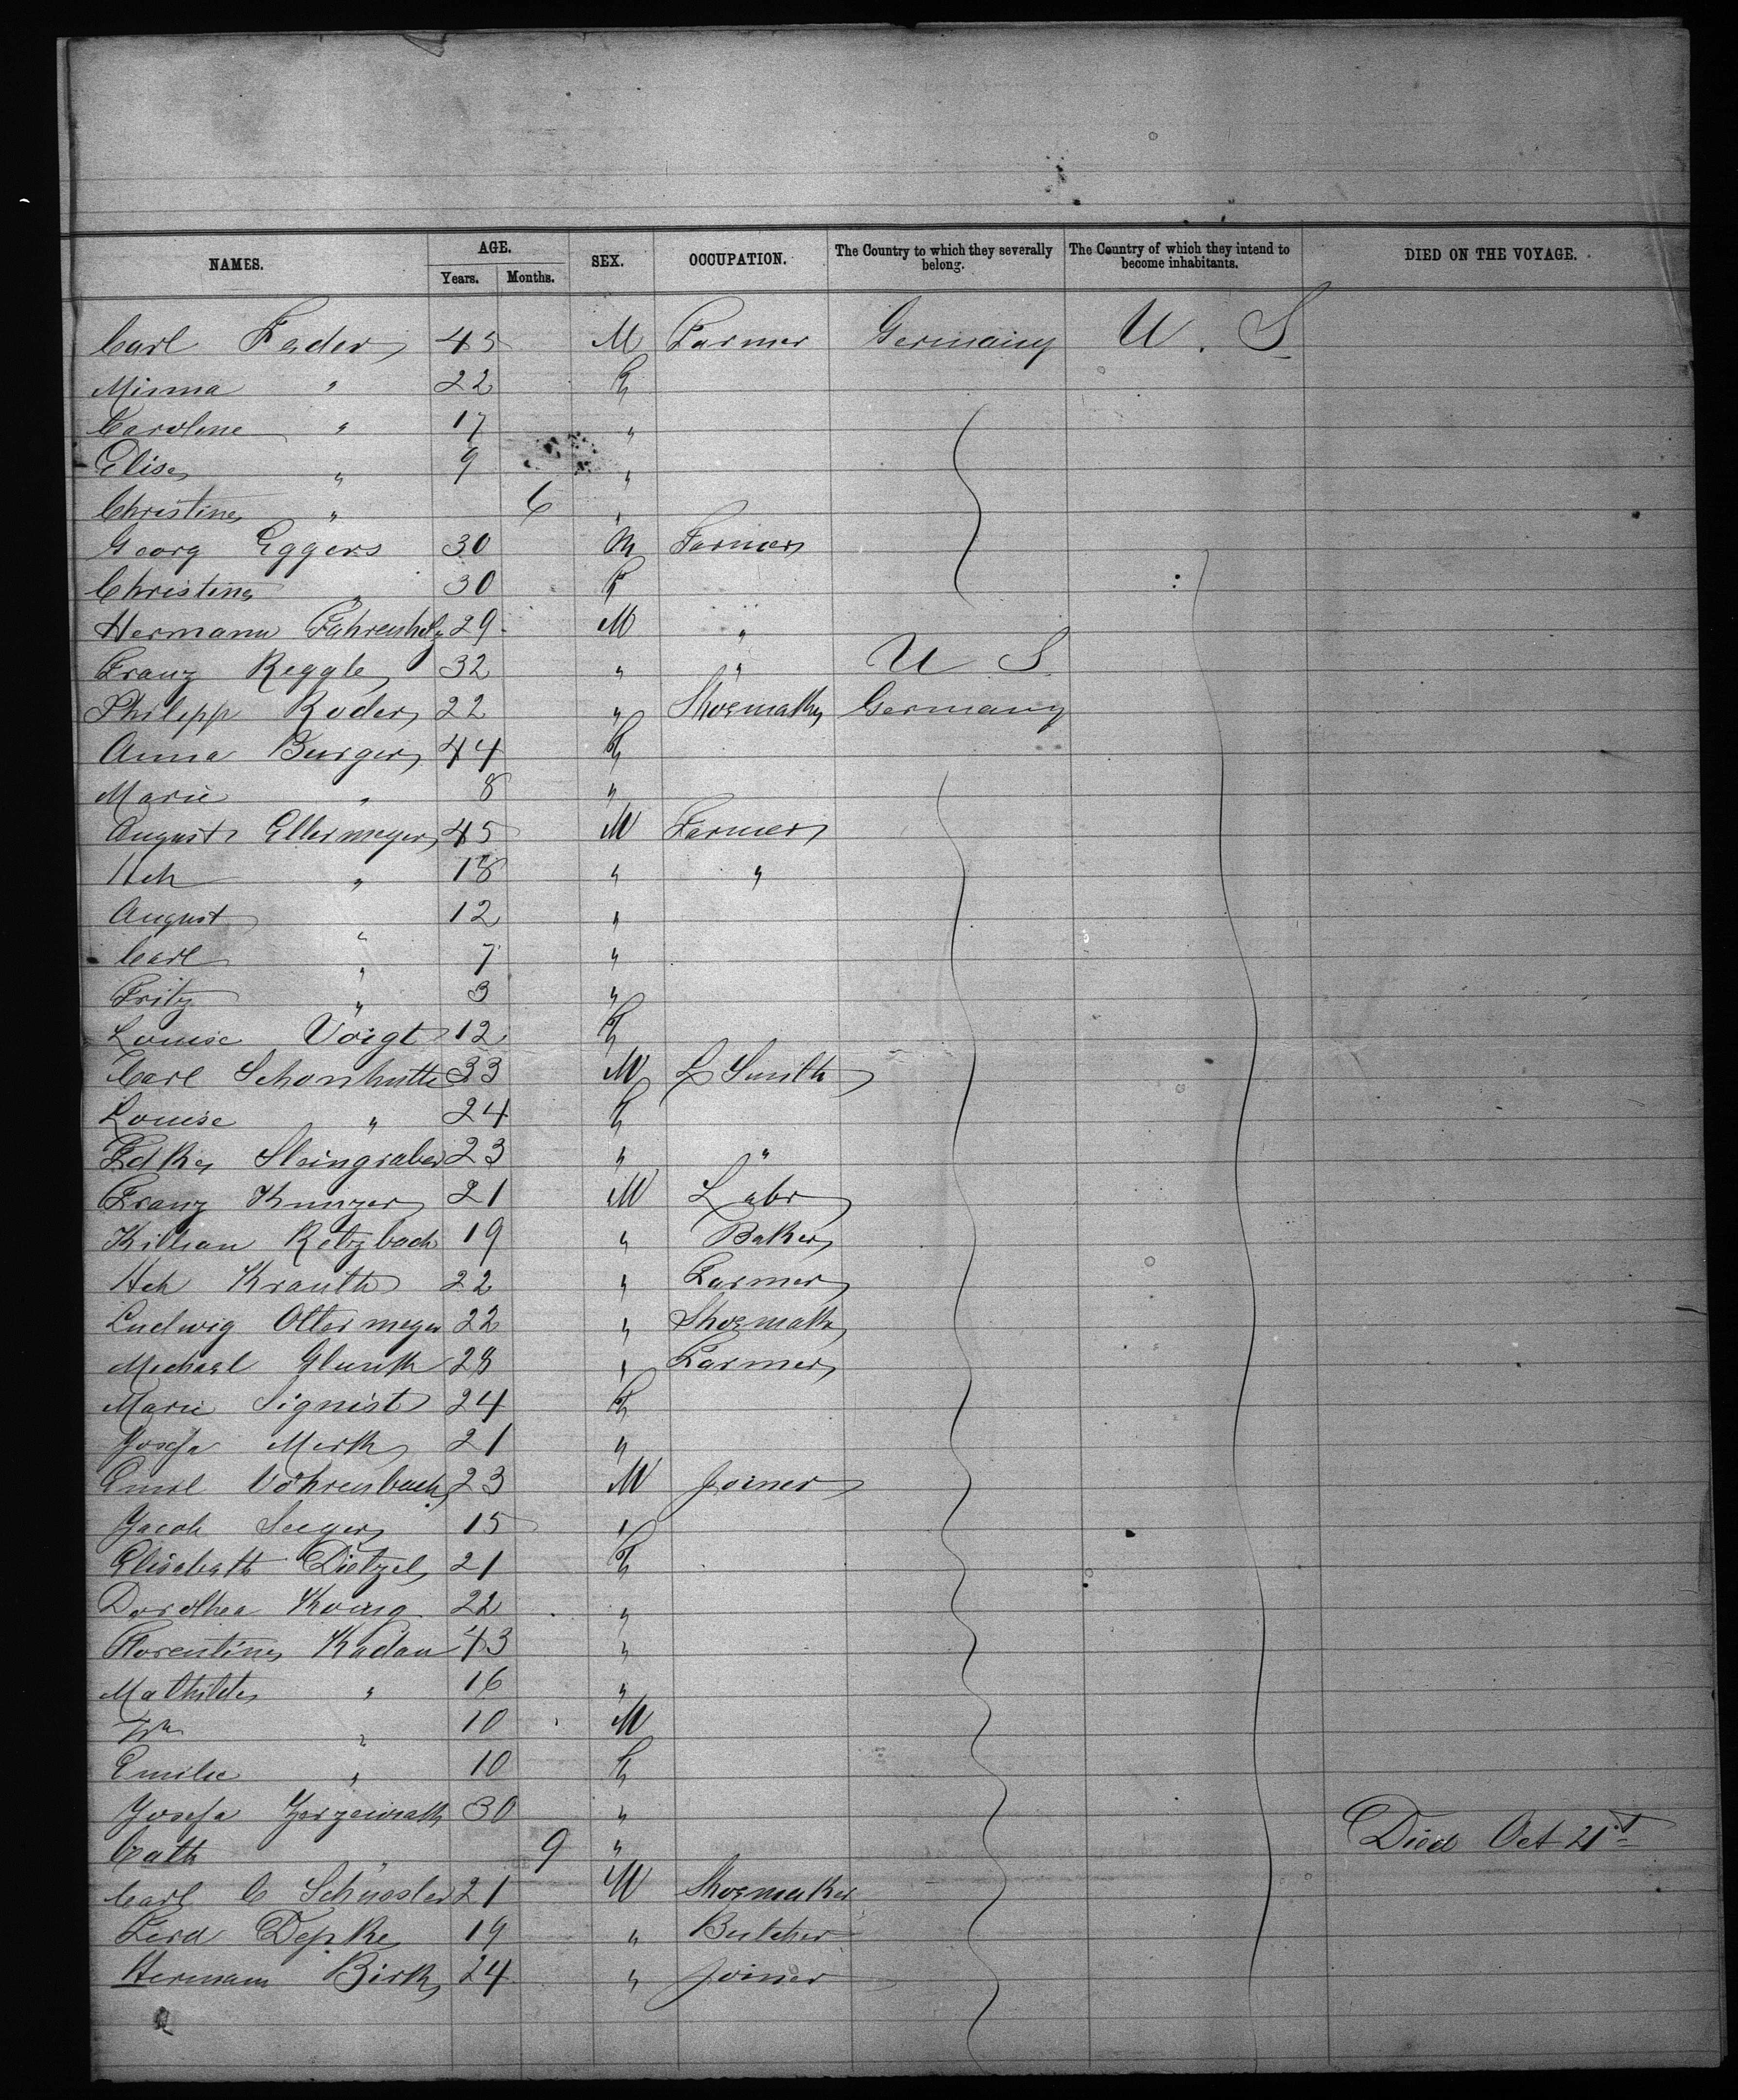 NAMES. AGE. SEX. OCCUPATION. The Country to which they severally belong. The Country of which they intend to become inhabitants. DIED ON THE VOYAGE.
Years. Months.
Carl Feder 45 M Farmer Germany U. S
Minna " 22 F
Caroline " 17 "
Elise " 9 "
Christine " 6 "
Georg Eggers 30 M Farmer
Christine " 30 F
Hermann Fahrenholz 29 M "
Franz Reggle 32 " " U S
Philipp Roder 22 " Shoemaker Germany
Anna Burger 44 F
Marie " 8 "
August Ellermeyer 45 M Farmer
Hch " 18 " "
August " 12 "
Carl " 7 "
Fritz " 3 "
Louise Voigt 12 F
Carl Schonhutte 33 M L Smith
Louise " 24 F
Steingraber 23 " "
Franz 21 M Labr
Kilian Retzbach 19 " Baker
Hch Krauth 22 " Farmer
Ludwig Ottermeyer 22 " Shoemak
Michael Glunk 28 " Farmer
Marie Signist 24 F
Josefa Merk 21 "
Emil Vohrenbach 23 M Joiner
Jacob Seeger 15 "
Elisabeth Dietzel 21 F
Dorothea Konig 22 "
Florentine Kadau 43 "
Mathilde " 16 "
Wm " 10 M
Emilie " 10 F
Josefa 30 "
Cath " 9 " Died Oct 21st
Carl C Schussler 21 M Shoemaker
Ferd Depke 19 " Butcher
Hermann Birk 24 " Joiner